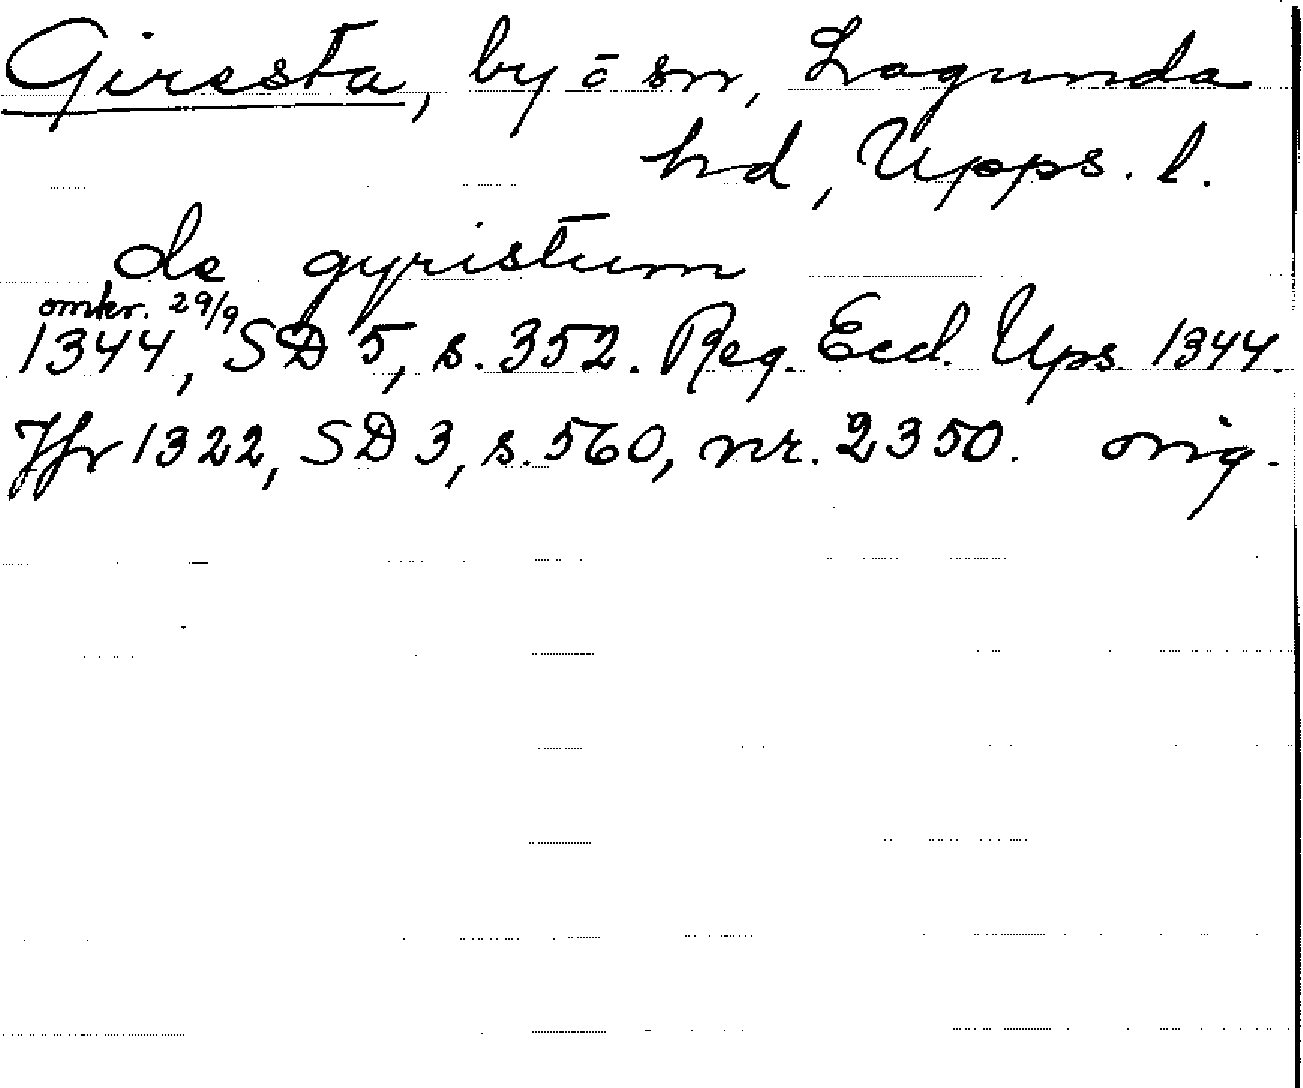 Giresta, by ō sn, Lagunda
hd, Upps. l.
de gyristum
omkr. 29/9
1344, SD 5, s. 352. Reg. Eccl. Ups. 1344.
Jfr 1322, SD 3, s. 560, nr. 2350. orig.